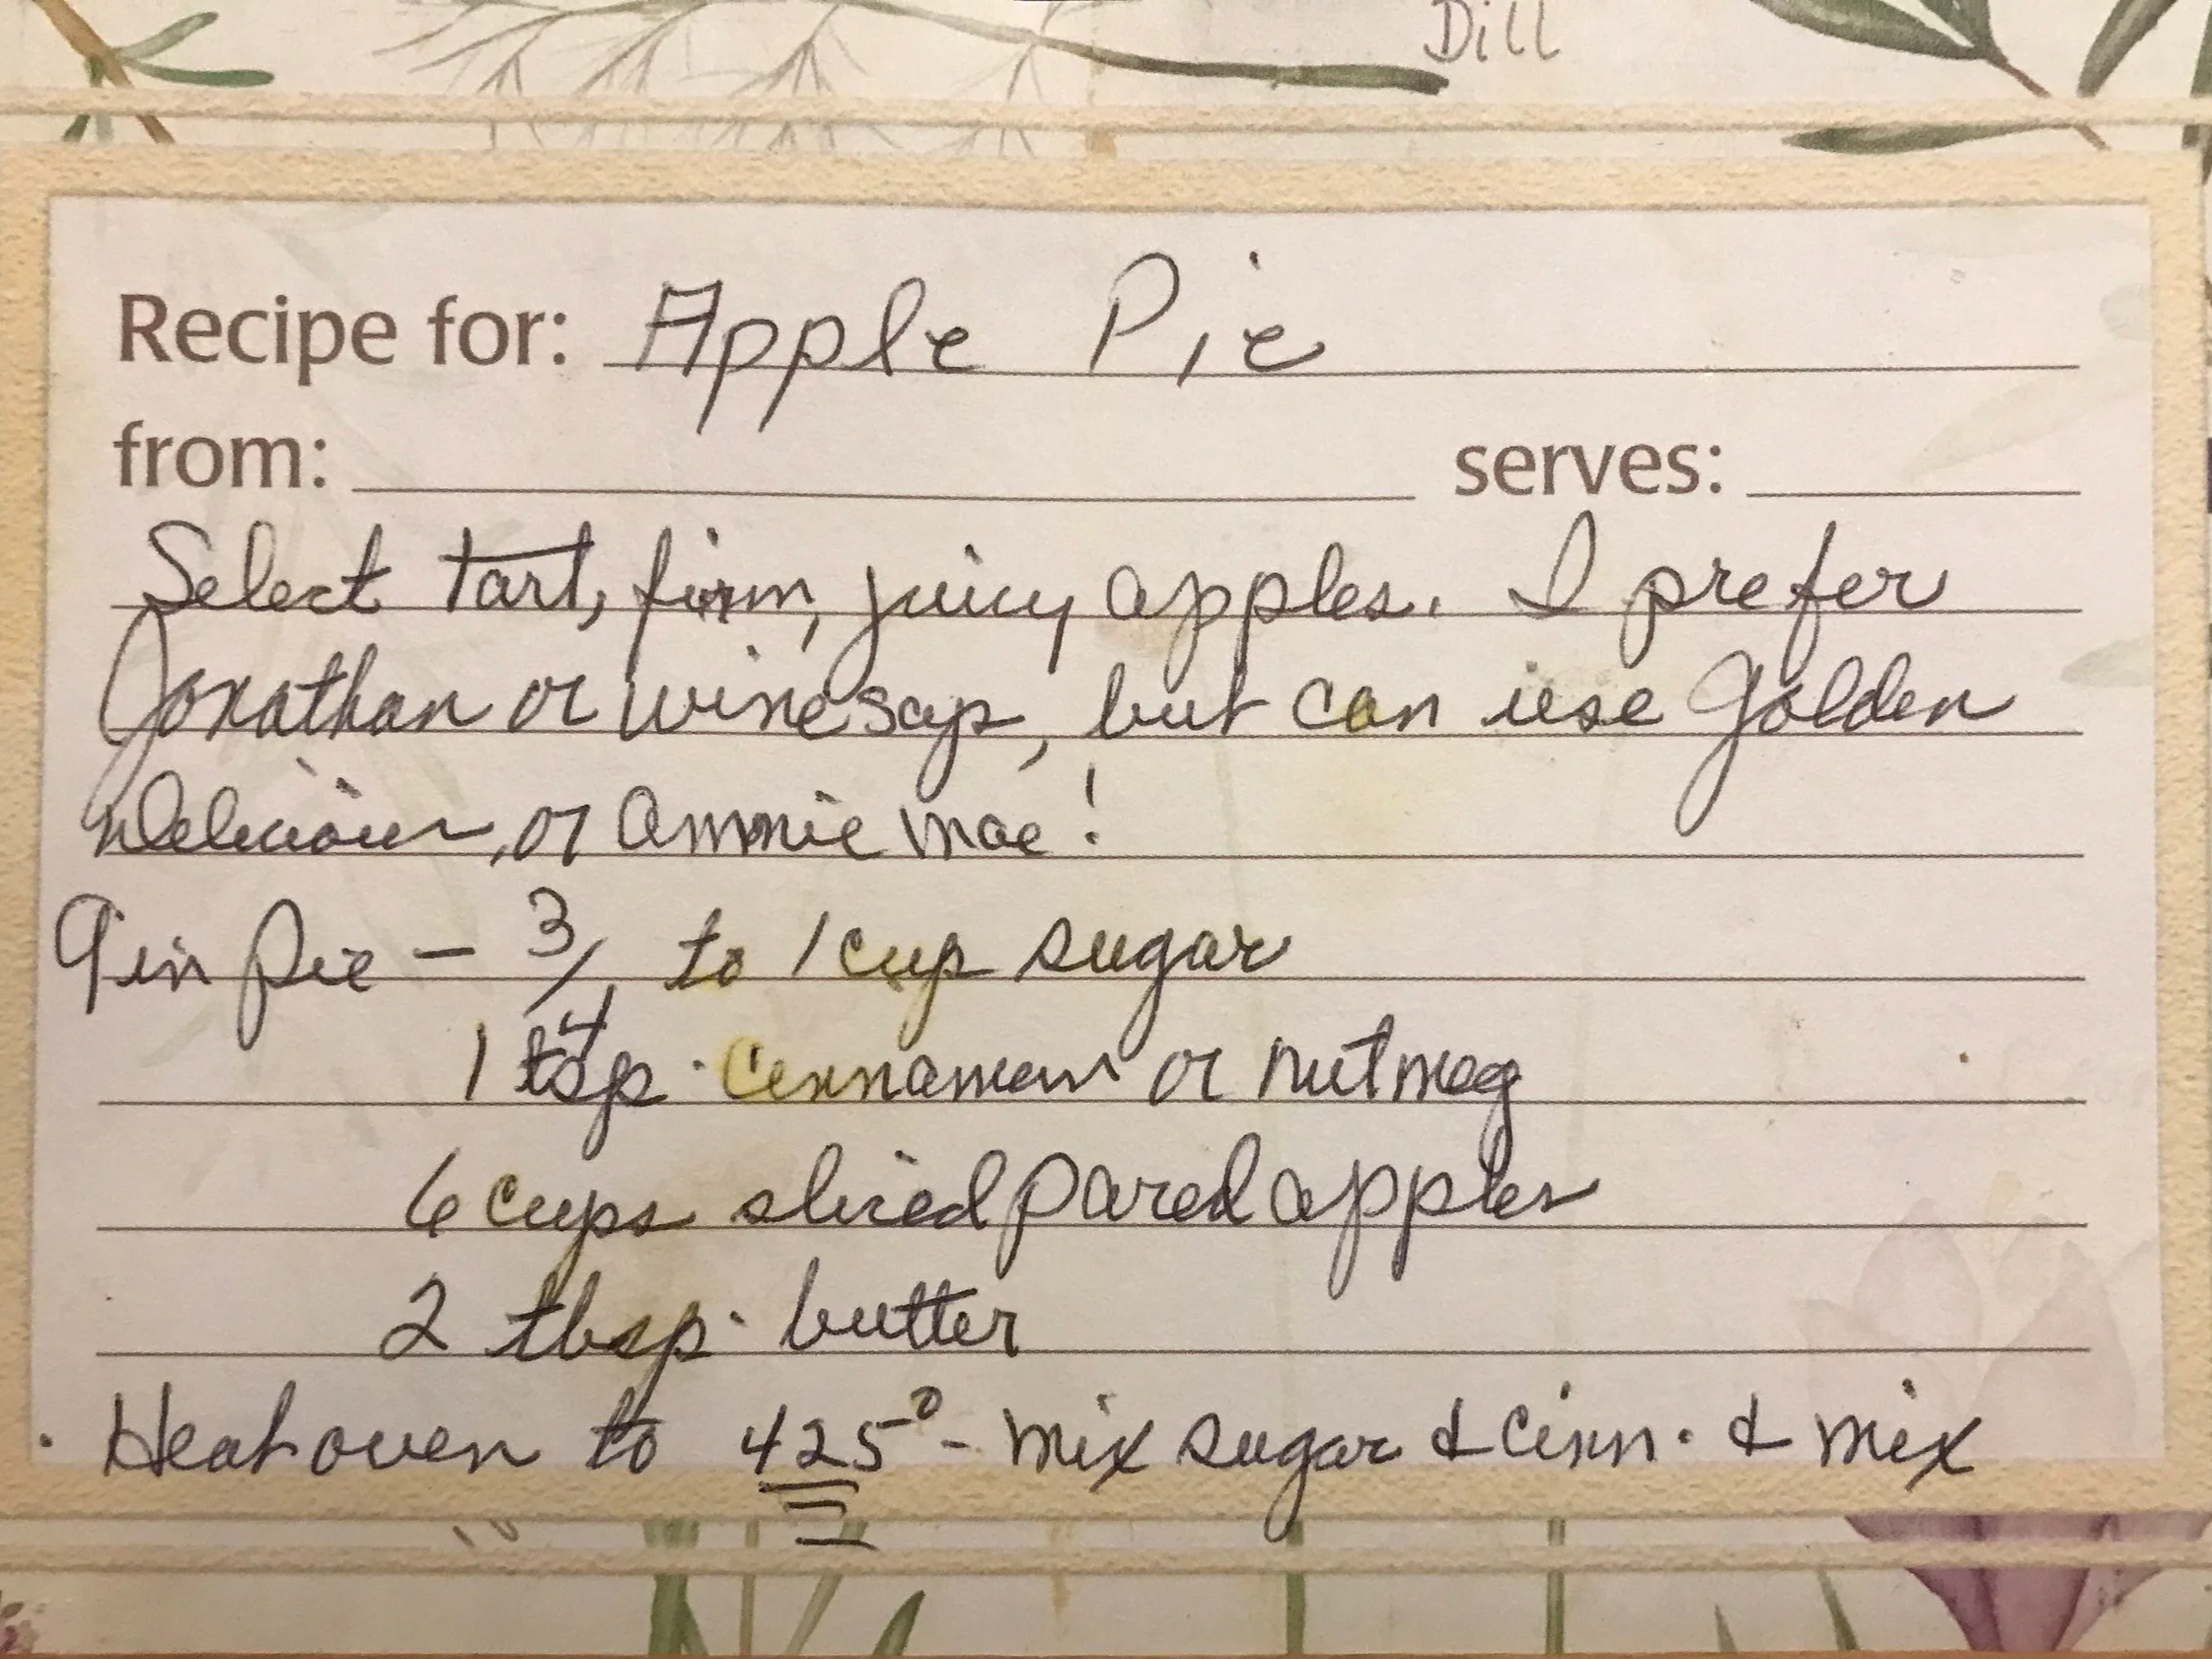 Dill
Recipe for: Apple Pie
from: serves:
Select tart, firm, juicy apples. I prefer
Jonathan or winesaps, but can use Golden
Delicious, or Ammie Mae!
9 in Pie - 3/4 to 1 cup sugar
1 tsp. Cinnamon or nutmeg
6 cups sliced pared apples
2 tbsp. butter
. Heat oven to 425° - mix sugar & Cinn. & mix